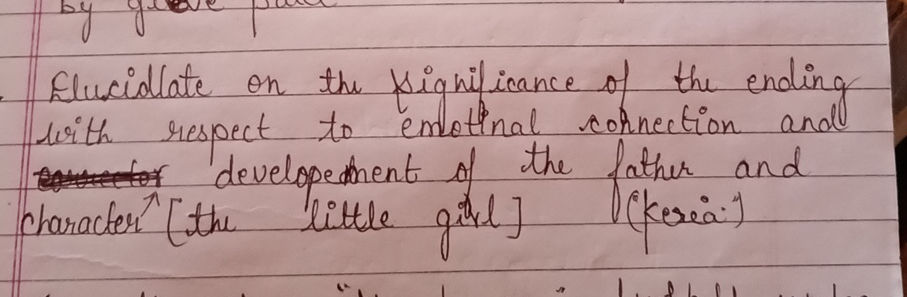 by
Elucidlate on the significance of the ending
with respect to emotinal connection and
character developement of the father and
[the little girl] (Kezia:)